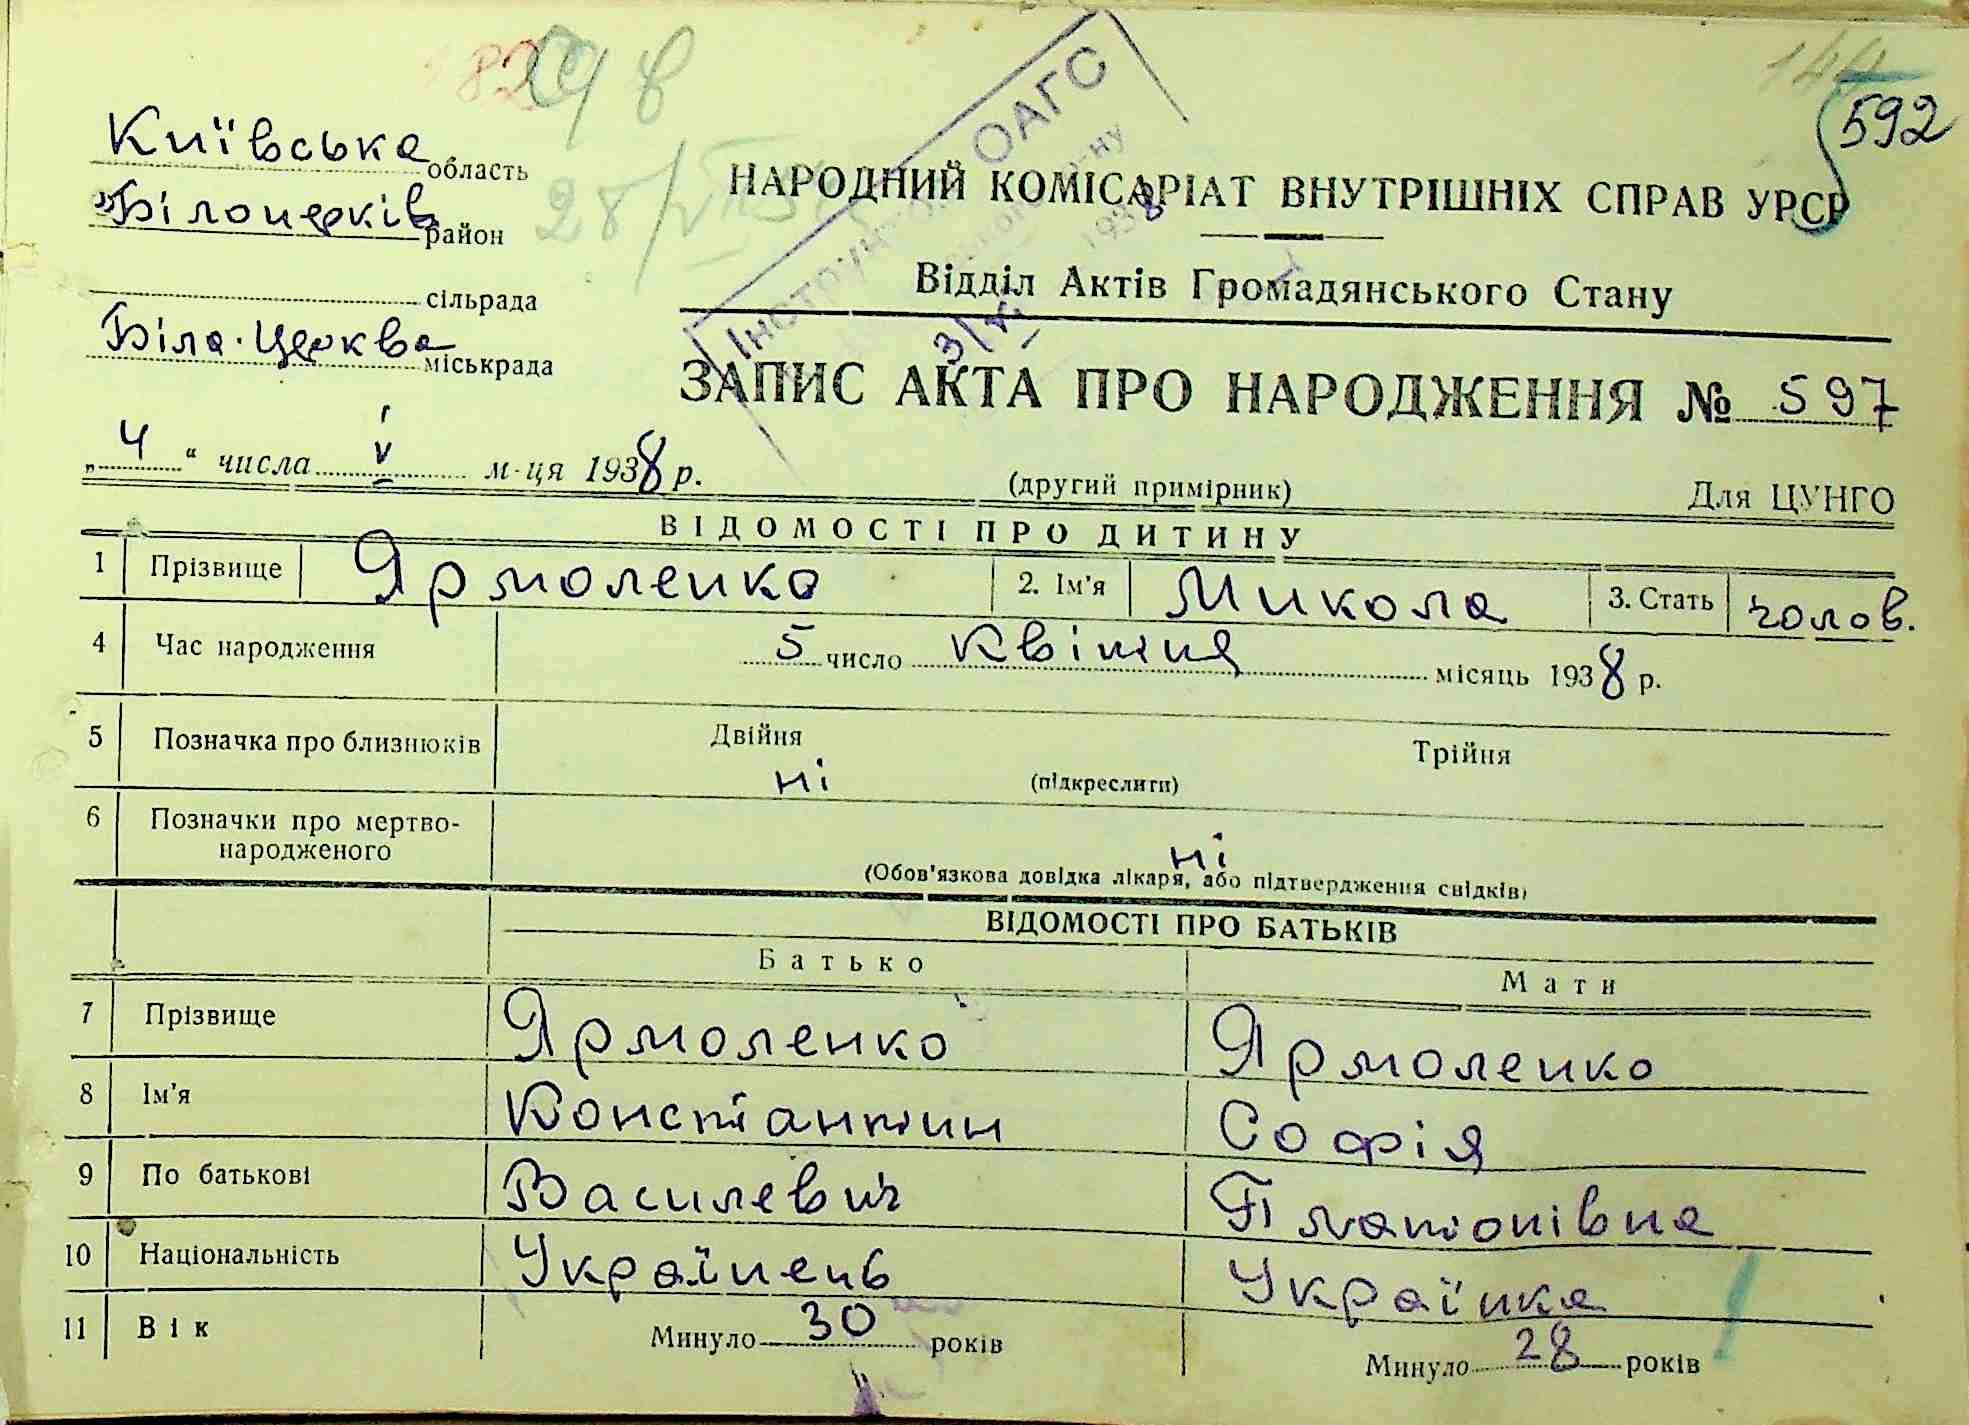 592
Київська область
Білоцерків район
сільрада
Біла-Церква міськрада
ОАГС
НАРОДНИЙ КОМІСАРІАТ ВНУТРІШНІХ СПРАВ УРСР
Відділ Актів Громадянського Стану
ЗАПИС АКТА ПРО НАРОДЖЕННЯ № 597
„ 4 “ числа V м-ця 1938 р.
(другий примірник) Для ЦУНГО
ВІДОМОСТІ ПРО ДИТИНУ
1 Прізвище Ярмоленко 2. Ім'я Микола 3. Стать чолов.
4 Час народження 5 число Квітня місяць 1938 р.
5 Позначка про близнюків Двійня Трійня
ні (підкреслити)
6 Позначки про мертво-
народженого
ні
(Обов'язкова довідка лікаря, або підтвердження свідків)
ВІДОМОСТІ ПРО БАТЬКІВ
Батько Мати
7 Прізвище Ярмоленко Ярмоленко
8 Ім'я Константин Софія
9 По батькові Василевич Платонівна
10 Національність Українець Українка
11 Вік Минуло 30 років Минуло 28 років